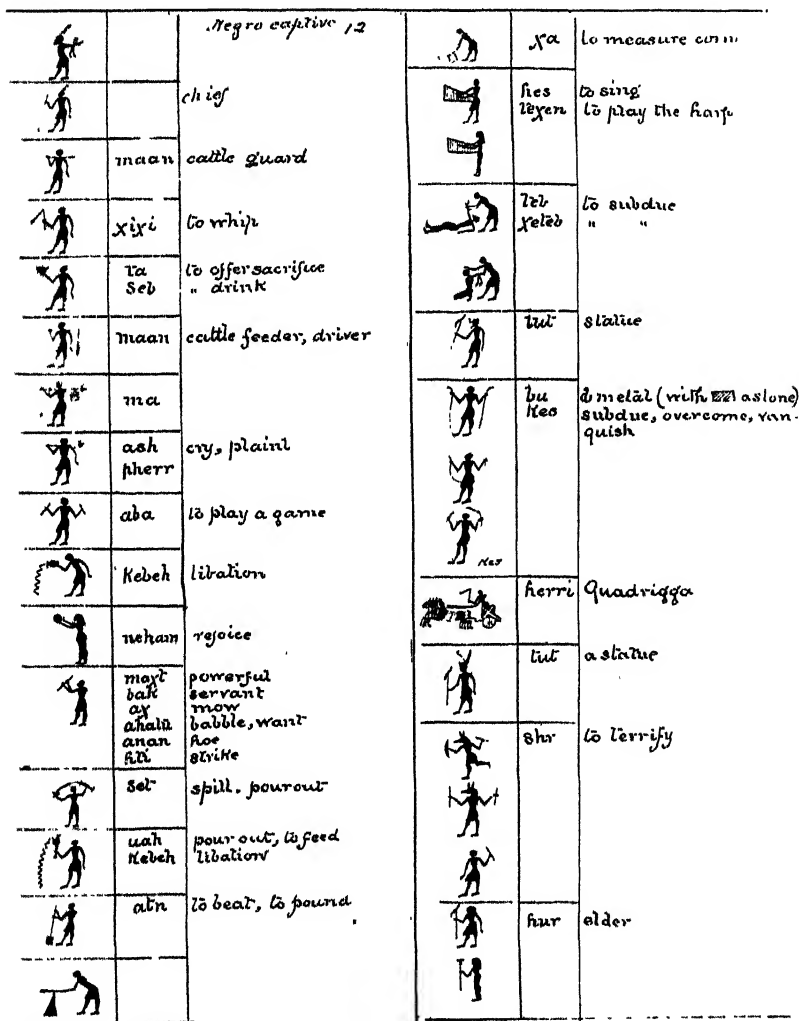 Negro captive 12
chief
maan cattle guard
χiχi to whip
ta to offer sacrifice
Seb " drink
maan cattle feeder, driver
ma
ash cry, plaint
pherr
aba to play a game
Kebeh libation
neham rejoice
maχt powerful
bak servant
aχ mow
ahalu babble, want
anan hoe
hti strike
set spill. pour out
uah pour out, to feed
Kebeh libation
atn to beat, to pound
χa to measure corn
hes to sing
teχen to play the harp
teb to subdue
χeteb " "
tut statue
bu metal (with a stone)
Kes subdue, overcome, van-
quish
Kes
herri Quadrigga
tut a statue
shr to terrify
hur elder